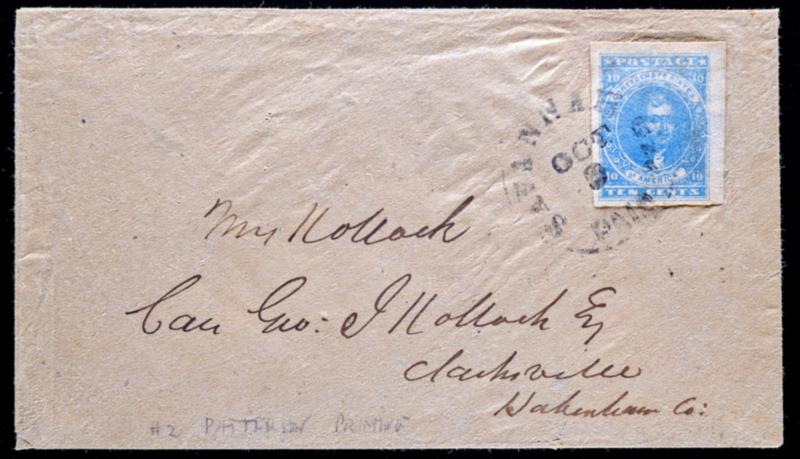 POSTAGE
10 10
CONFEDERATE STATES
OF AMERICA
10 10
TEN CENTS
SAVANNAH
OCT
PAID
Mrs Kollock
Care Geo: J Kollock Esq
Clarksville
Habersham Co:
#2 PATTERSON PRINTING